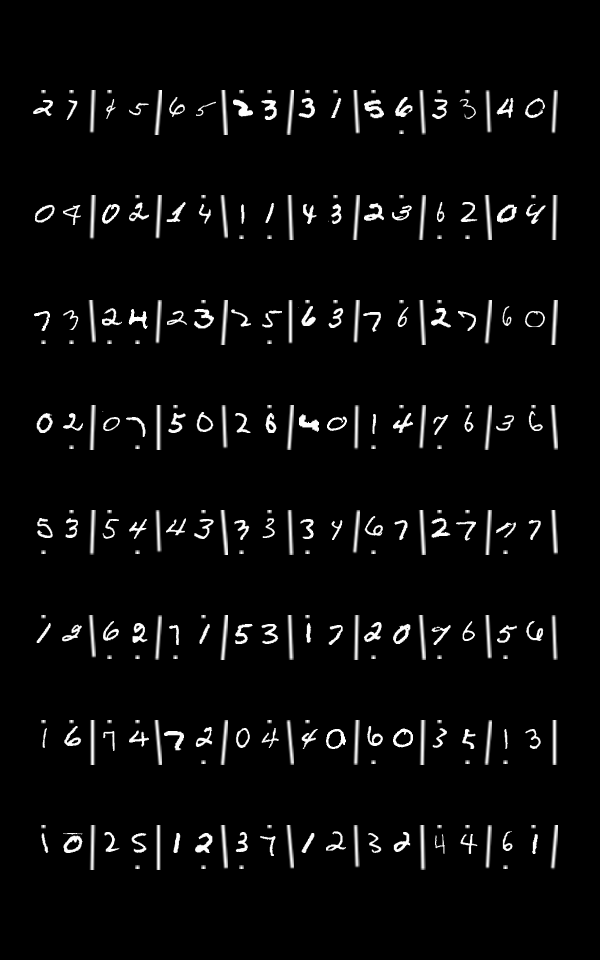 2 7 | 4 5 | 6 5 | 2 3 | 3 1 | 5 6 | 3 3 | 4 0 |
0 4 | 0 2 | 1 4 | 1 1 | 4 3 | 2 3 | 6 2 | 0 4 |
7 3 | 2 4 | 2 3 | 2 5 | 6 3 | 7 6 | 2 7 | 6 0 |
0 2 | 0 7 | 5 0 | 2 6 | 4 0 | 1 4 | 7 6 | 3 6 |
5 3 | 5 4 | 4 3 | 3 3 | 3 4 | 6 7 | 2 7 | 7 7 |
1 2 | 6 2 | 7 1 | 5 3 | 1 7 | 2 0 | 7 6 | 5 6 |
1 6 | 7 4 | 7 2 | 0 4 | 4 0 | 6 0 | 3 5 | 1 3 |
1 0 | 2 5 | 1 2 | 3 7 | 1 2 | 3 2 | 4 4 | 6 1 |